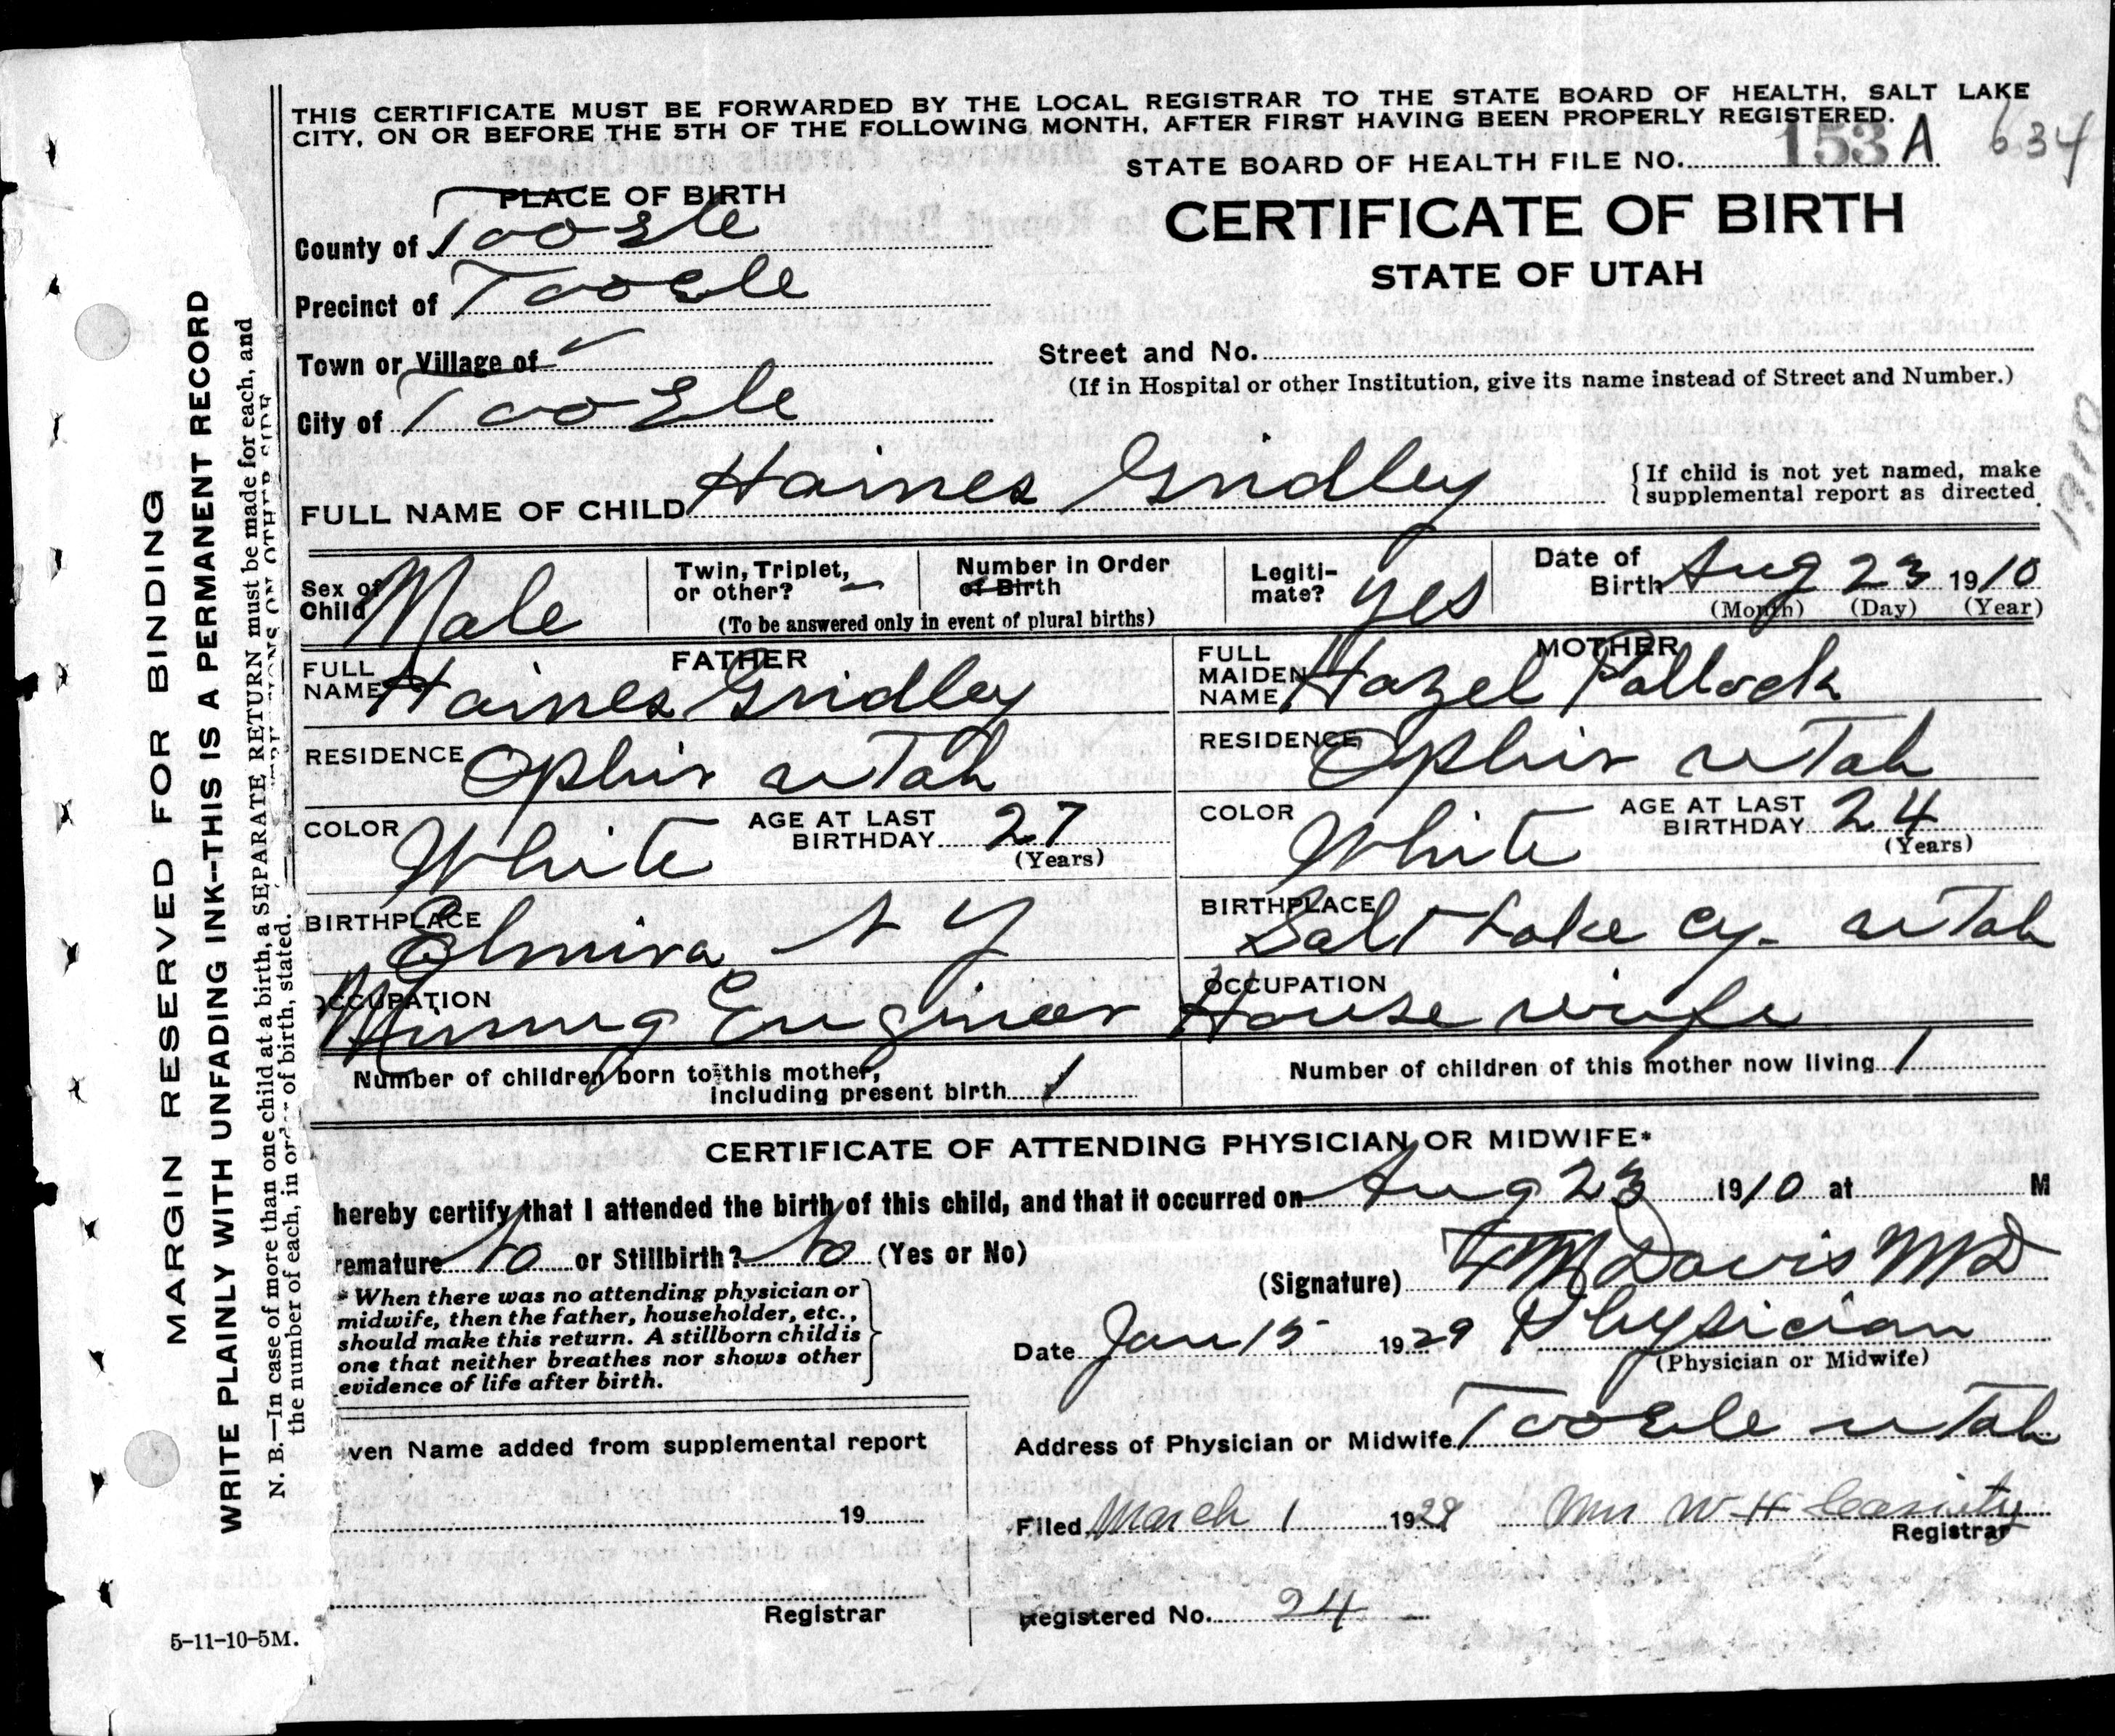 THIS CERTIFICATE MUST BE FORWARDED BY THE LOCAL REGISTRAR TO THE STATE BOARD OF HEALTH, SALT LAKE
CITY, ON OR BEFORE THE 5TH OF THE FOLLOWING MONTH, AFTER FIRST HAVING BEEN PROPERLY REGISTERED.
STATE BOARD OF HEALTH FILE NO. 153 A 634
PLACE OF BIRTH
CERTIFICATE OF BIRTH
STATE OF UTAH
County of Tooele
Precinct of Tooele
Town or Village of
Street and No.
(If in Hospital or other Institution, give its name instead of Street and Number.)
City of Tooele
1910
FULL NAME OF CHILD Haines Gridley
{If child is not yet named, make
supplemental report as directed
Sex of Child Male
Twin, Triplet, or other? —
Number in Order of Birth
(To be answered only in event of plural births)
Legitimate? yes
Date of Birth Aug 23 1910
(Month) (Day) (Year)
FATHER
FULL NAME Haines Gridley
RESIDENCE Ophir Utah
COLOR White AGE AT LAST BIRTHDAY 27 (Years)
BIRTHPLACE Elmira N Y
OCCUPATION Mining Engineer
MOTHER
FULL MAIDEN NAME Hazel Pollock
RESIDENCE Ophir Utah
COLOR White AGE AT LAST BIRTHDAY 24 (Years)
BIRTHPLACE Salt Lake Cy. Utah
OCCUPATION House wife
Number of children born to this mother,
including present birth 1
Number of children of this mother now living 1
CERTIFICATE OF ATTENDING PHYSICIAN OR MIDWIFE*
hereby certify that I attended the birth of this child, and that it occurred on Aug 23 1910 at M
remature No or Stillbirth? No (Yes or No)
* When there was no attending physician or
midwife, then the father, householder, etc.,
should make this return. A stillborn child is
one that neither breathes nor shows other
evidence of life after birth.
(Signature) Davis MD
Date Jan 15 1929 Physician
(Physician or Midwife)
Address of Physician or Midwife Tooele Utah
ven Name added from supplemental report
19
Registrar
Filed March 1 1929 W H
Registrar
Registered No. 24
5-11-10-5M.
MARGIN RESERVED FOR BINDING
WRITE PLAINLY WITH UNFADING INK--THIS IS A PERMANENT RECORD
N. B.—In case of more than one child at a birth, a SEPARATE RETURN must be made for each, and
the number of each, in order of birth, stated.